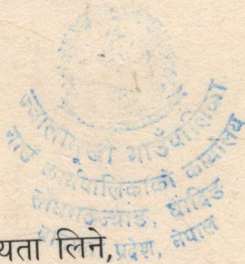 ज्वालामूखी गाउँपालिका
गाउँ कार्यपालिकाको कार्यालय
धादिङ
प्रदेश, नेपाल
यता लिने,